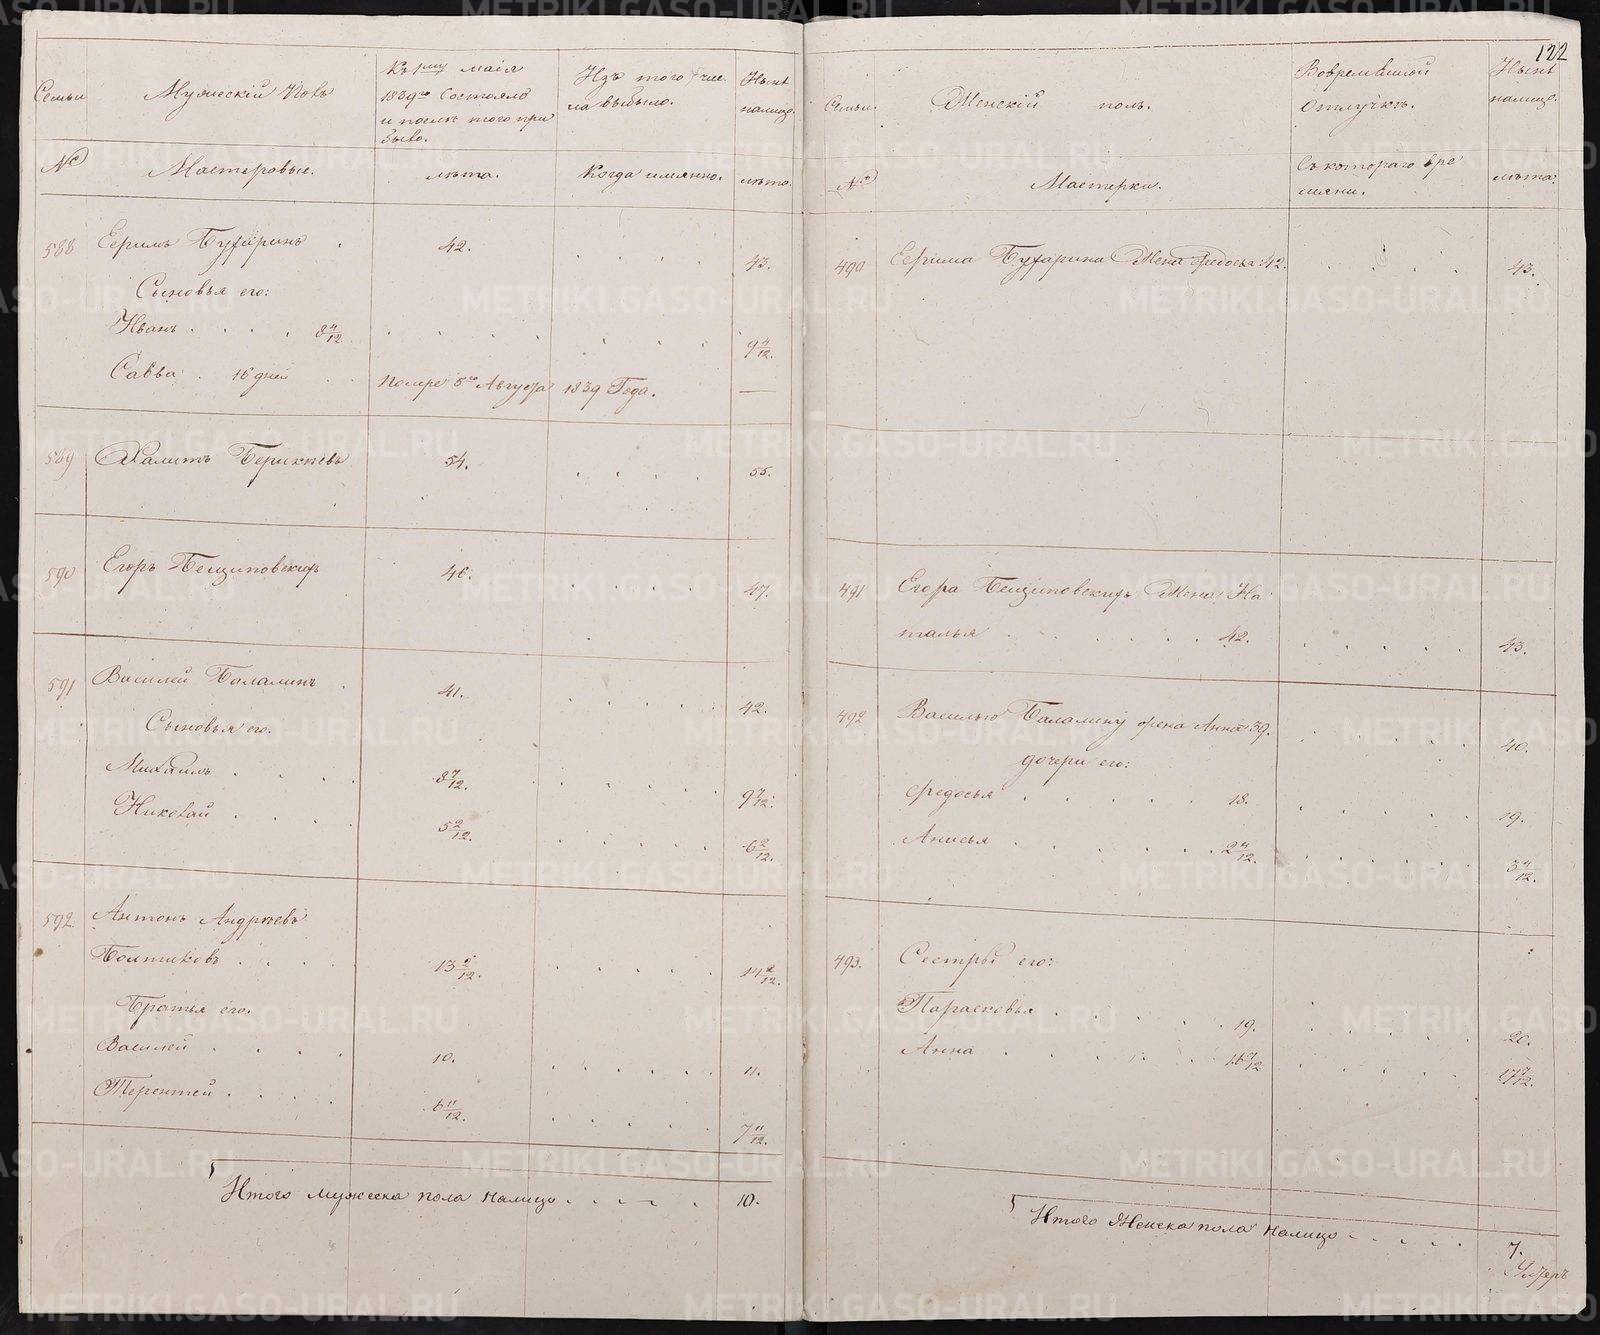 122
Семьи
Мужескій Полъ
Къ 1му маія
1839го Состояло
и послѣ того при
было.
Изъ того чис
ла выбыло.
Нынѣ
налицо.
№
Мастеровые.
лѣта.
Когда имянно.
лѣта.
588
Ефимъ
42.
43.
Сыновья его:
Иванъ
8 4/12
9 4/12.
Савва
16 дней
помре 5го Августа 1839 Года.
—
589
54.
55.
590
Егоръ
46.
47.
591
Василий Баламинъ
41.
42.
Сыновья его.
Михаилъ
8 7/12.
9 7/12.
Николай
5 2/12.
6 2/12.
592.
Антонъ Андрѣевъ
Болтиковъ
13 2/12.
14 2/12.
Братья его.
Василей
10.
11.
Терентей
6 11/12.
7 11/12.
Итого мужеска пола налицо
10.
Семьи.
Женскій полъ.
Во времянной
отлучкѣ.
Нынѣ
налицо.
№
Мастерки.
Съ котораго вре
мяни.
лѣта.
490
Ефима Жена Федосья 42.
43.
491
Егора Жена На
талья
42.
43.
492
Василью Баламину жена Анна 39.
40.
дочери его:
Федосья
18.
19.
Анисья
2 4/12.
3 4/12.
493.
Сестры его:
Парасковья
19.
20.
Анна
16 7/12
17 7/12.
Итого Женска пола налицо
7.
METRIKI.GASO-URAL.RU